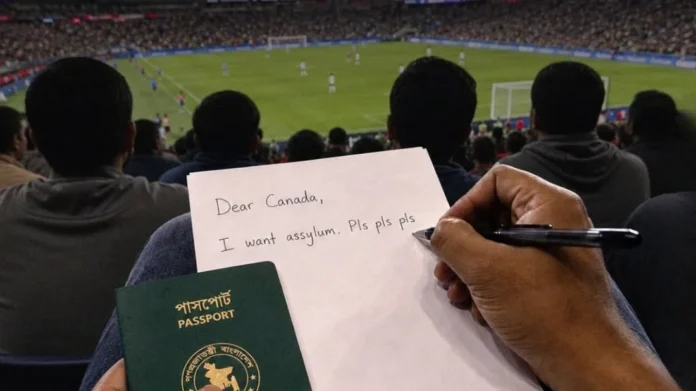 Dear Canada,
I want assylum. Pls pls pls
পাসপোর্ট
PASSPORT